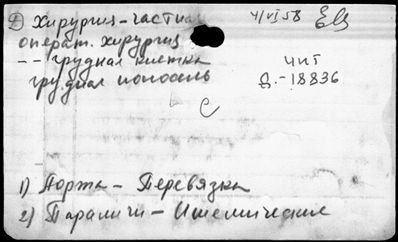 Д) Хирургия - частная
4/VI 58
операт. хирургия
-- грудная клетка
чит
грудная полость
Д.-18836
с
1) Аорта - Перевязка
2) Параличи - Ишемические